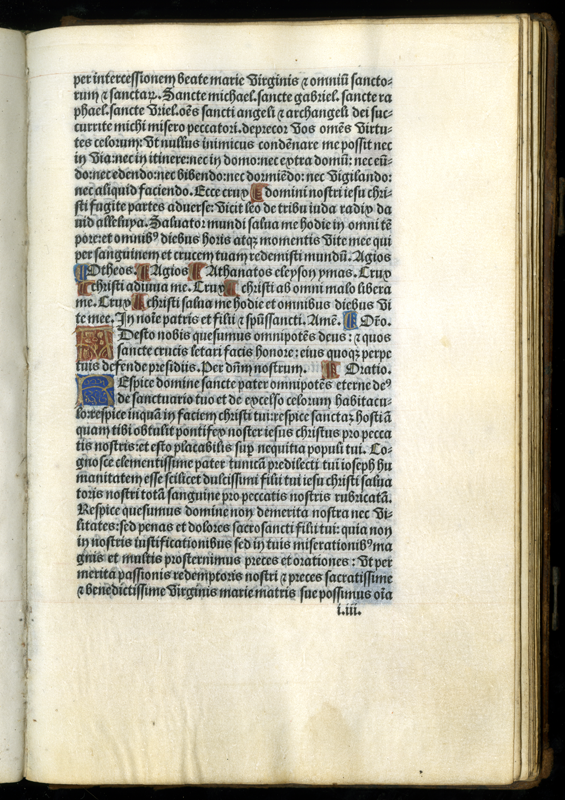 per intercessionem beate marie Virginis ⁊ omniū sancto-
rum ⁊ sanctaꝝ. Sancte michael. sancte gabriel. sancte ra
phael. sancte Vriel. oēs sancti angeli ⁊ archangeli dei suc-
currite michi misero peccatori. deprecor Vos omēs Virtu-
tes celorum: Vt nullus inimicus condēnare me possit nec
in Via: nec in itinere: nec in domo: nec extra domū: nec eū-
do: nec edendo: nec bibendo: nec dormiēdo: nec Vigilando:
nec aliquid faciendo. Ecce crux domini nostri iesu chri-
sti fugite partes aduerse: Vicit leo de tribu iuda radix da
uid alleluya. Saluator mundi salua me hodie in omni tē
pore: et omnibꝰ diebus horis atqꝫ momentis Vite mee qui
per sanguinem et crucem tuam redemisti mundū. Agios
Otheos. Agios Athanatos eleyson ymas. Crux
christi adiuua me. Crux christi ab omni malo libera
me. Crux christi salua me hodie et omnibus diebus Vi
te mee. In noīe patris et filii ⁊ spūssancti. Amē. Oro̅.
Adesto nobis quesumus omnipotēs deus: ⁊ quos
sancte crucis letari facis honore: eius quoqꝫ perpe
tuis defende presidiis. Per dn̄m nostrum. Oratio.
REspice domine sancte pater omnipotēs eterne deꝰ
de sanctuario tuo et de excelso celorum habitacu-
lo: respice inquā in faciem christi tui: respice sanctaꝫ hostiā
quam tibi obtulit pontifex noster iesus christus pro pecca
tis nostris: et esto placabilis sup̄ nequitia populi tui. Co-
gnosce clementissime pater tunicā predilecti tui ioseph hu
manitatem esse scilicet dulcissimi filii tui iesu christi salua
toris nostri totā sanguine pro peccatis nostris rubricatā.
Respice quesumus domine non demerita nostra nec Vi-
litates: sed penas et dolores sacrosancti filii tui: quia non
in nostris iustificationibus sed in tuis miserationibꝰ ma
gnis et multis prosternimus preces et orationes: Vt per
merita passionis redemptoris nostri ⁊ preces sacratissime
⁊ benedictissime Virginis marie matris sue possimus oīa
i.iii.